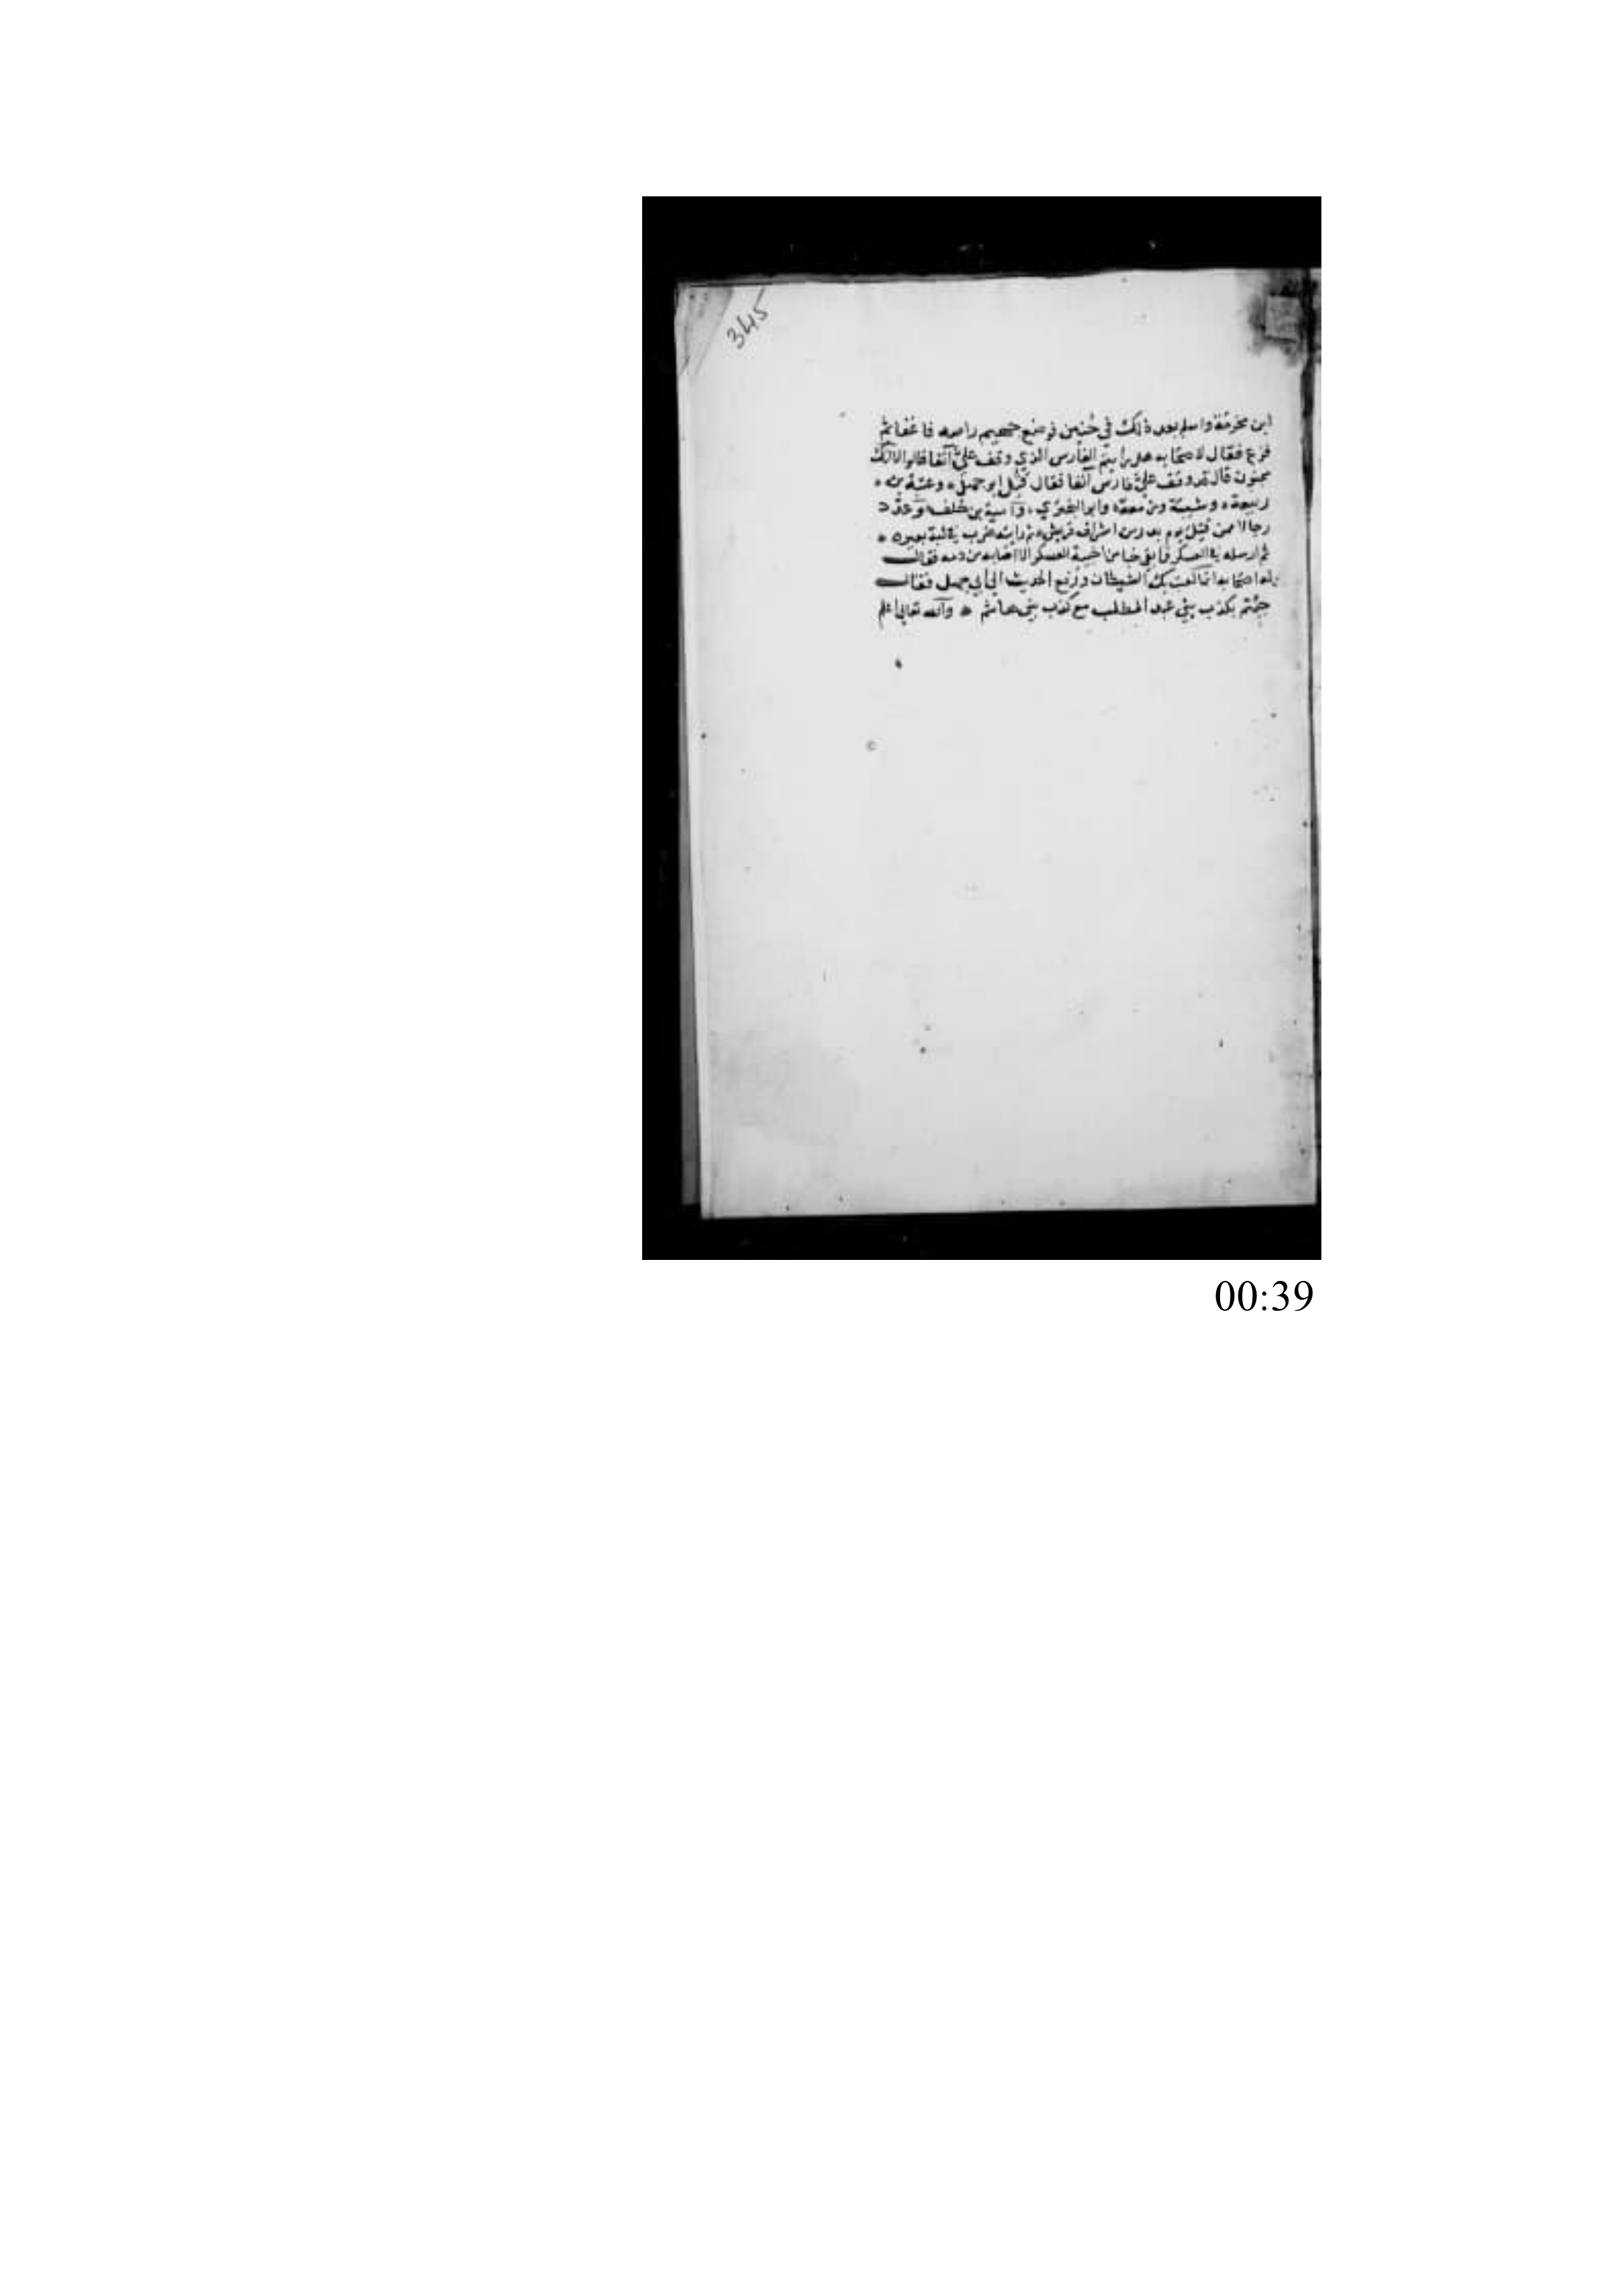 345
ابن مخرمة واسلم بعد ذلك في حُنين فوضع جهيم راسه فاغفا ثم
فزع فقال لاصحابه هل رايتم الفارس الذي وقف عليَّ آنفا قالوا لا انك
مجنون قال قد وقف عليَّ فارس آنفا فقال قُتِل ابو جهل وعتبة بن
ربيعة وشيبة وزمعة وابو البختري وامية بن خلف وعدّد
رجالا ممن قتل يوم بدر من اشراف قريش ثم رايته ضرب في لبة بعيره
ثم ارسله في العسكر فما بقي خبا من اخبية العسكر الا اصابه من دمه فقال
له اصحابه انما لعب بك الشيطان ورُفع الحديث الى ابي جهل فقال
جئتم بكذب بني عبد المطلب مع كذب بني هاشم والله تعالى اعلم
00:39